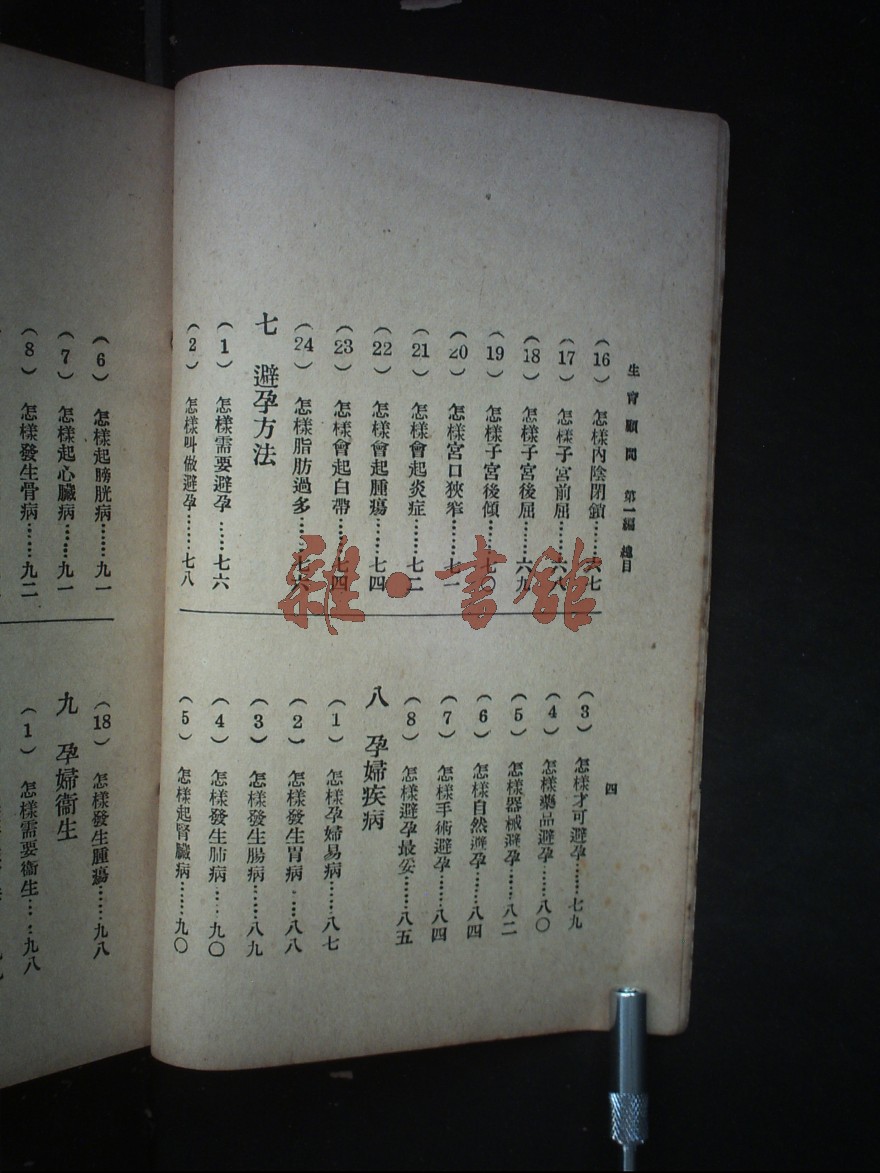 生育顧問 第一編 總目
四
（16） 怎樣內陰閉鎖……六七
（17） 怎樣子宮前屈……六八
（18） 怎樣子宮後屈……六九
（19） 怎樣子宮後傾……七〇
（20） 怎樣宮口狹窄……七一
（21） 怎樣會起炎症……七二
（22） 怎樣會起腫瘍……七四
（23） 怎樣會起白帶……七四
（24） 怎樣脂肪過多……七六
七 避孕方法
（1） 怎樣需要避孕……七六
（2） 怎樣叫做避孕……七八
（3） 怎樣才可避孕……七九
（4） 怎樣藥品避孕……八〇
（5） 怎樣器械避孕……八二
（6） 怎樣自然避孕……八四
（7） 怎樣手術避孕……八四
（8） 怎樣避孕最妥……八五
八 孕婦疾病
（1） 怎樣孕婦易病……八七
（2） 怎樣發生胃病……八八
（3） 怎樣發生腸病……八九
（4） 怎樣發生肺病……九〇
（5） 怎樣起腎臟病……九〇
（6） 怎樣起膀胱病……九一
（7） 怎樣起心臟病……九一
（8） 怎樣發生骨病……九二
（18） 怎樣發生腫瘍……九八
九 孕婦衞生
（1） 怎樣需要衞生……九八
雜·書館